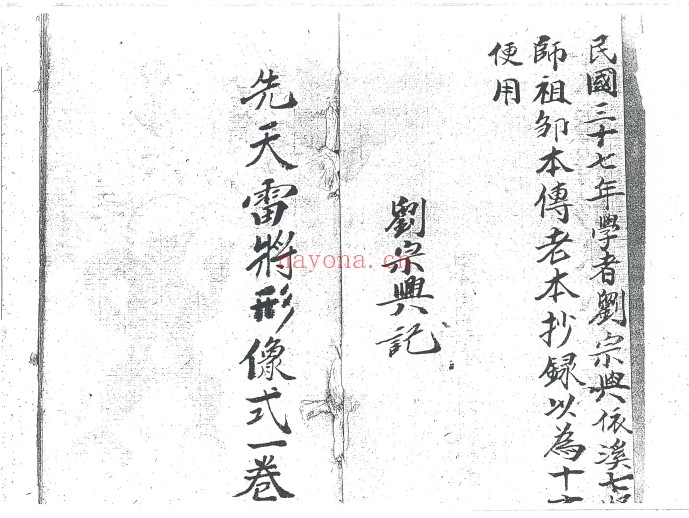 民國三十七年學者劉宗興依溪七
師祖鄒本傳老本抄録以為十
便用
劉宗興記
先天雷將形像式一卷
nayona.cn